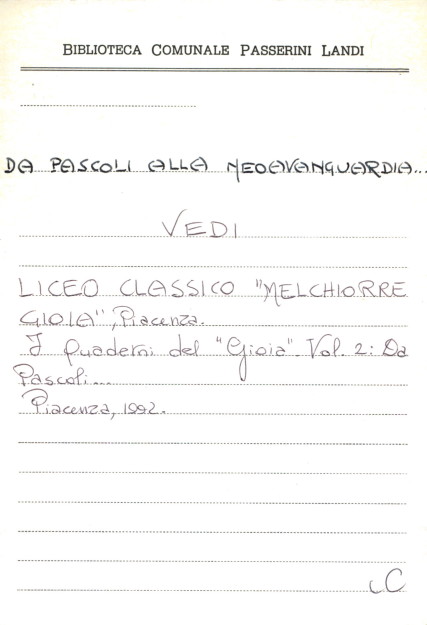 BIBLIOTECA COMUNALE PASSERINI LANDI
DA PASCOLI ALLA NEOAVANGUARDIA...
VEDI
LICEO CLASSICO "MELCHIORRE
GIOIA", Piacenza.
I Quaderni del "Gioia". Vol. 2: Da
Pascoli...
Piacenza, 1992.